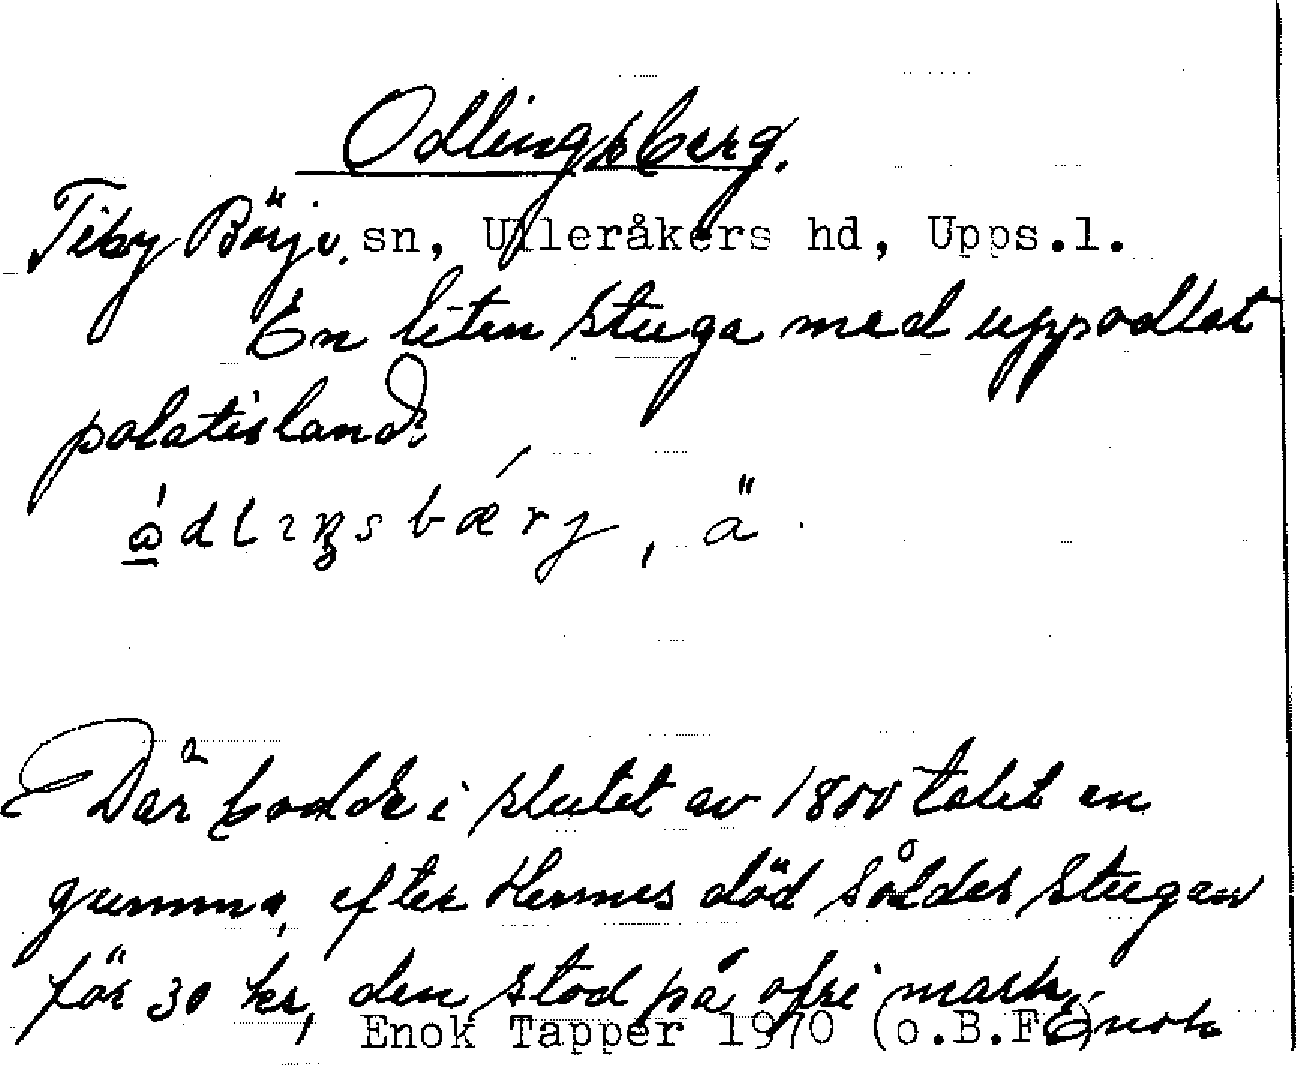 Odlingsberg.
Tiby Börje. sn, Ulleråkers hd, Upps.l.
En liten stuga med uppodlat
potatisland.
ådliŋsbærj, ä.
Där bodde i slutet av 1800 talet en
gumma, efter Hennes död såldes stugan
för 30 kr, den stod på ofri mark. Enok
Enok Tapper 1970 (o.B.F.)